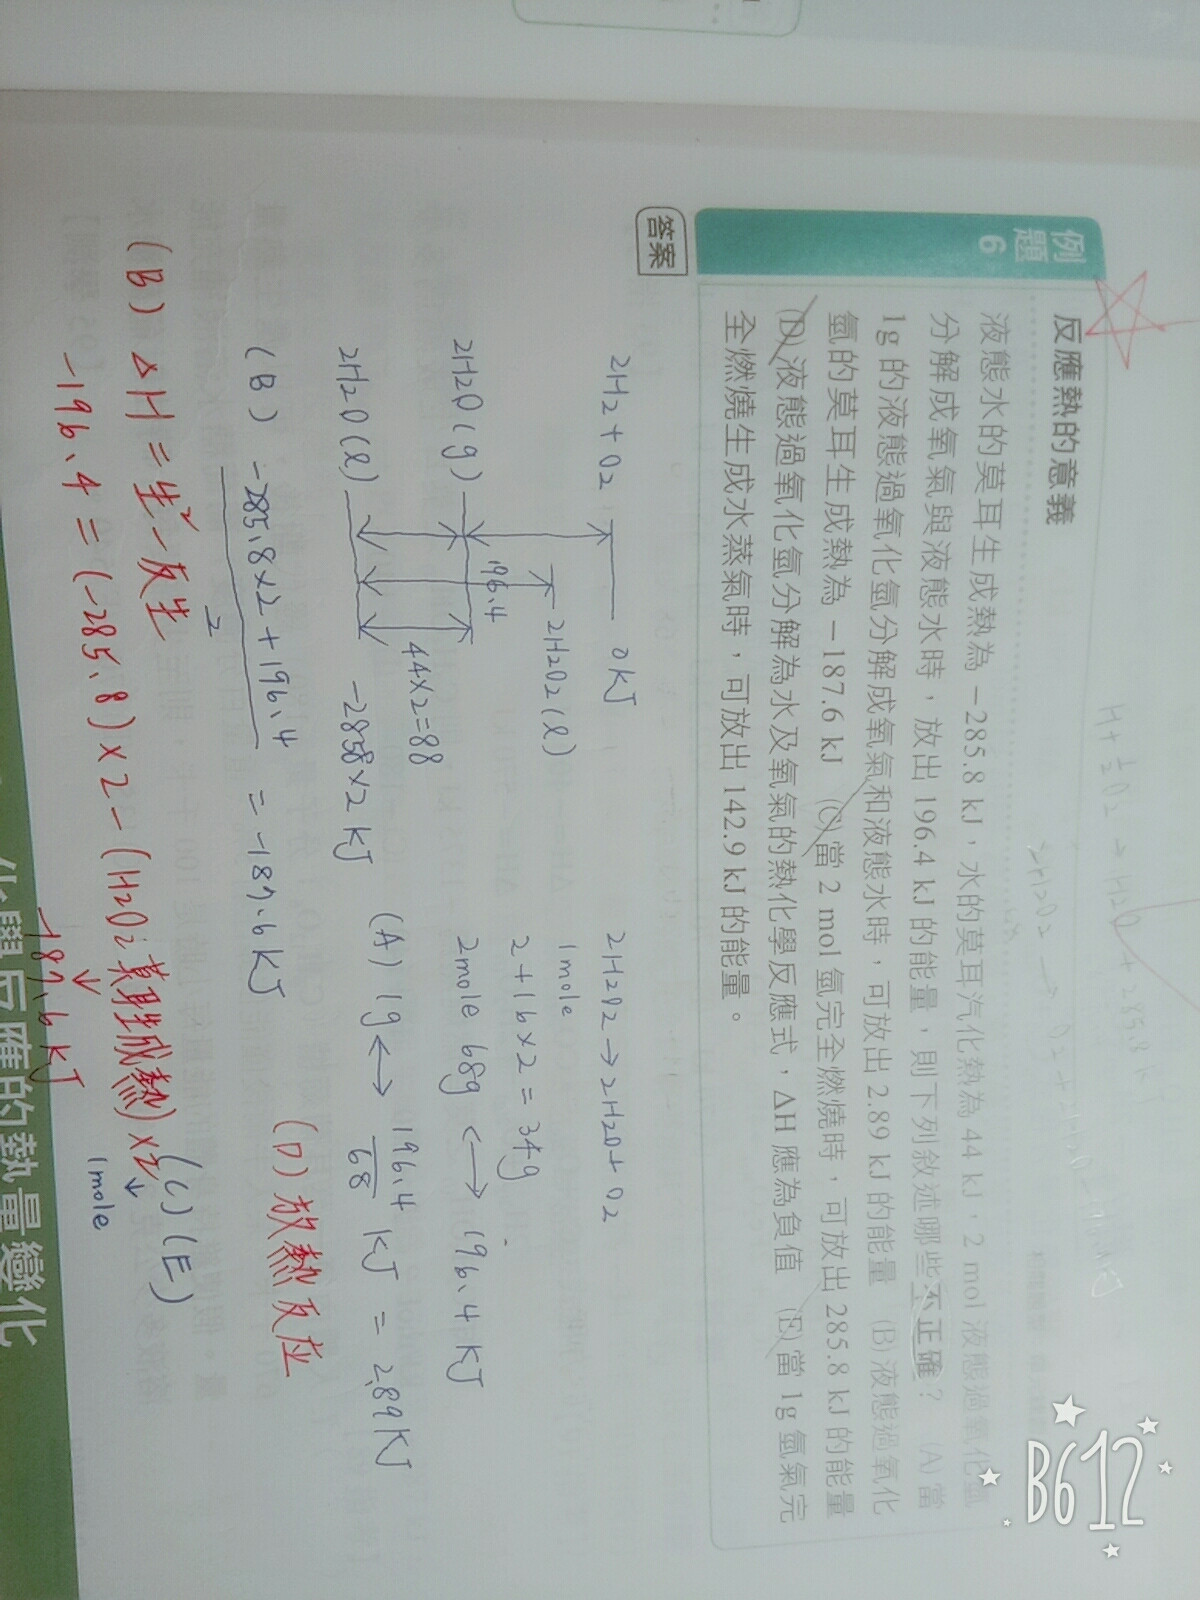 例題 6
反應熱的意義
液態水的莫耳生成熱為－285.8 kJ，水的莫耳汽化熱為 44 kJ，2 mol 液態過氧化氫
分解成氧氣與液態水時，放出 196.4 kJ 的能量，則下列敘述哪些不正確？ (A) 當
1g 的液態過氧化氫分解成氧氣和液態水時，可放出 2.89 kJ 的能量 (B) 液態過氧化
氫的莫耳生成熱為－187.6 kJ (C) 當 2 mol 氫完全燃燒時，可放出 285.8 kJ 的能量
(D) 液態過氧化氫分解為水及氧氣的熱化學反應式，ΔH 應為負值 (E) 當 1g 氫氣完
全燃燒生成水蒸氣時，可放出 142.9 kJ 的能量。
答案
2H2+O2 0kJ
2H2O2(l)
196.4
2H2O(g)
44×2=88
2H2O(l) -285.8×2 kJ
2H2O2→2H2O+O2
1mole
2+16×2=34g
2mole 68g ↔ 196.4 kJ
(A) 1g ↔ 196.4/68 kJ = 2.89kJ
(D) 放熱反应
(B) -285.8×2+196.4/2 = -187.6kJ
(C)(E)
(B) ΔH=生-反生
-196.4=(-285.8)×2-(H2O2莫耳生成熱)×2
1mole
-187.6kJ
化學反應的熱量變化
B612